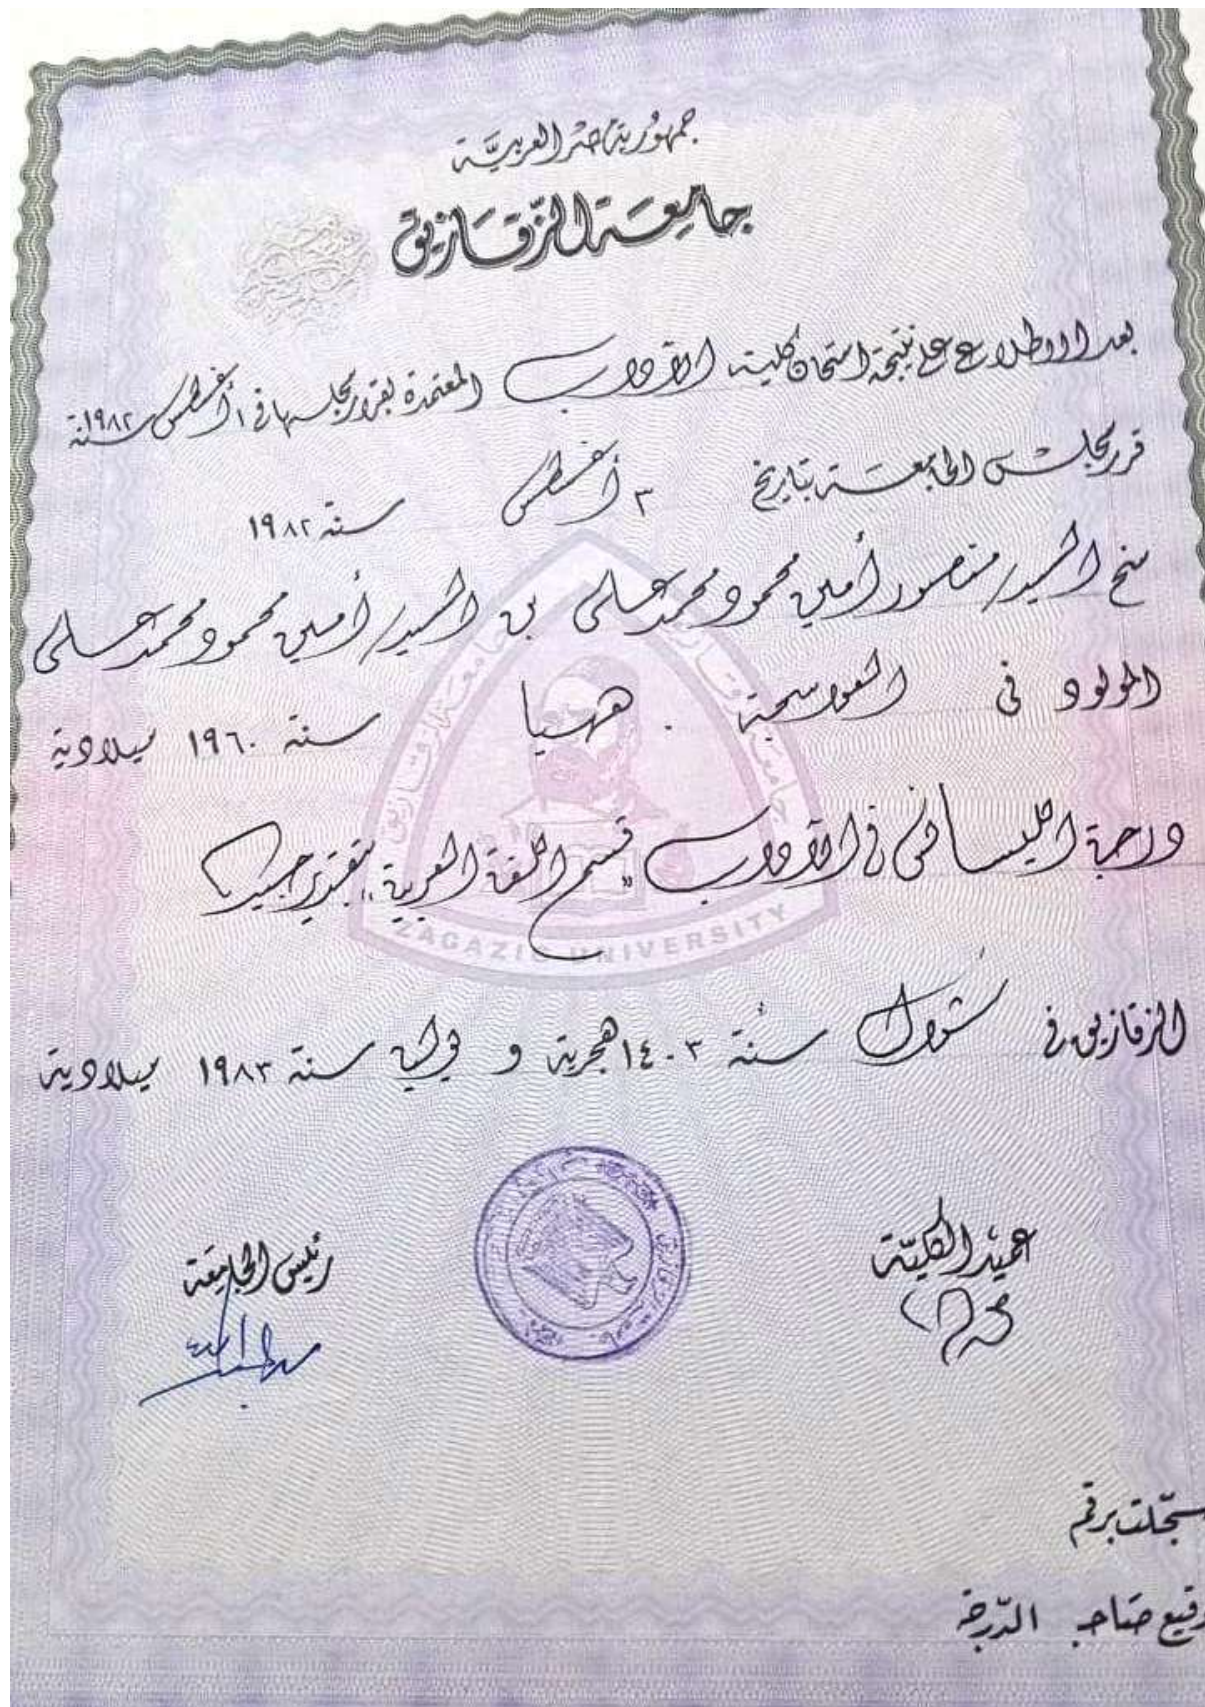 جمهورية مصر العربية
جامعة الزقازيق
بعد الاطلاع على نتيجة امتحان كلية الآداب المعتمدة بقرار مجلسها في ١ أغسطس سنة ١٩٨٢
قرر مجلس الجامعة بتاريخ ٣ أغسطس سنة ١٩٨٢
منح السيد/ منصور أمين محمود محمد على بن السيد/ أمين محمود محمد على
المولود فى العواسجة . ههيا سنة ١٩٦٠ ميلادية
درجة الليسانس في الآداب "قسم اللغة العربية" بتقدير جيد
ZAGAZIG UNIVERSITY
الزقازيق في شوال سنة ١٤٠٣ هجرية و يوليو سنة ١٩٨٣ ميلادية
عميد الكلية
رئيس الجامعة
سجلت برقم
صاحب الدرجة